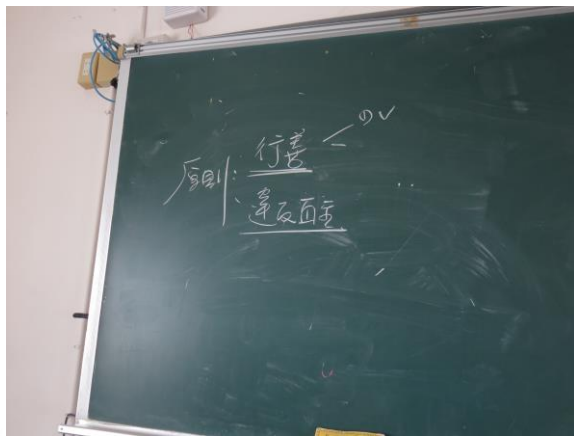 原則: 行善
違反自主